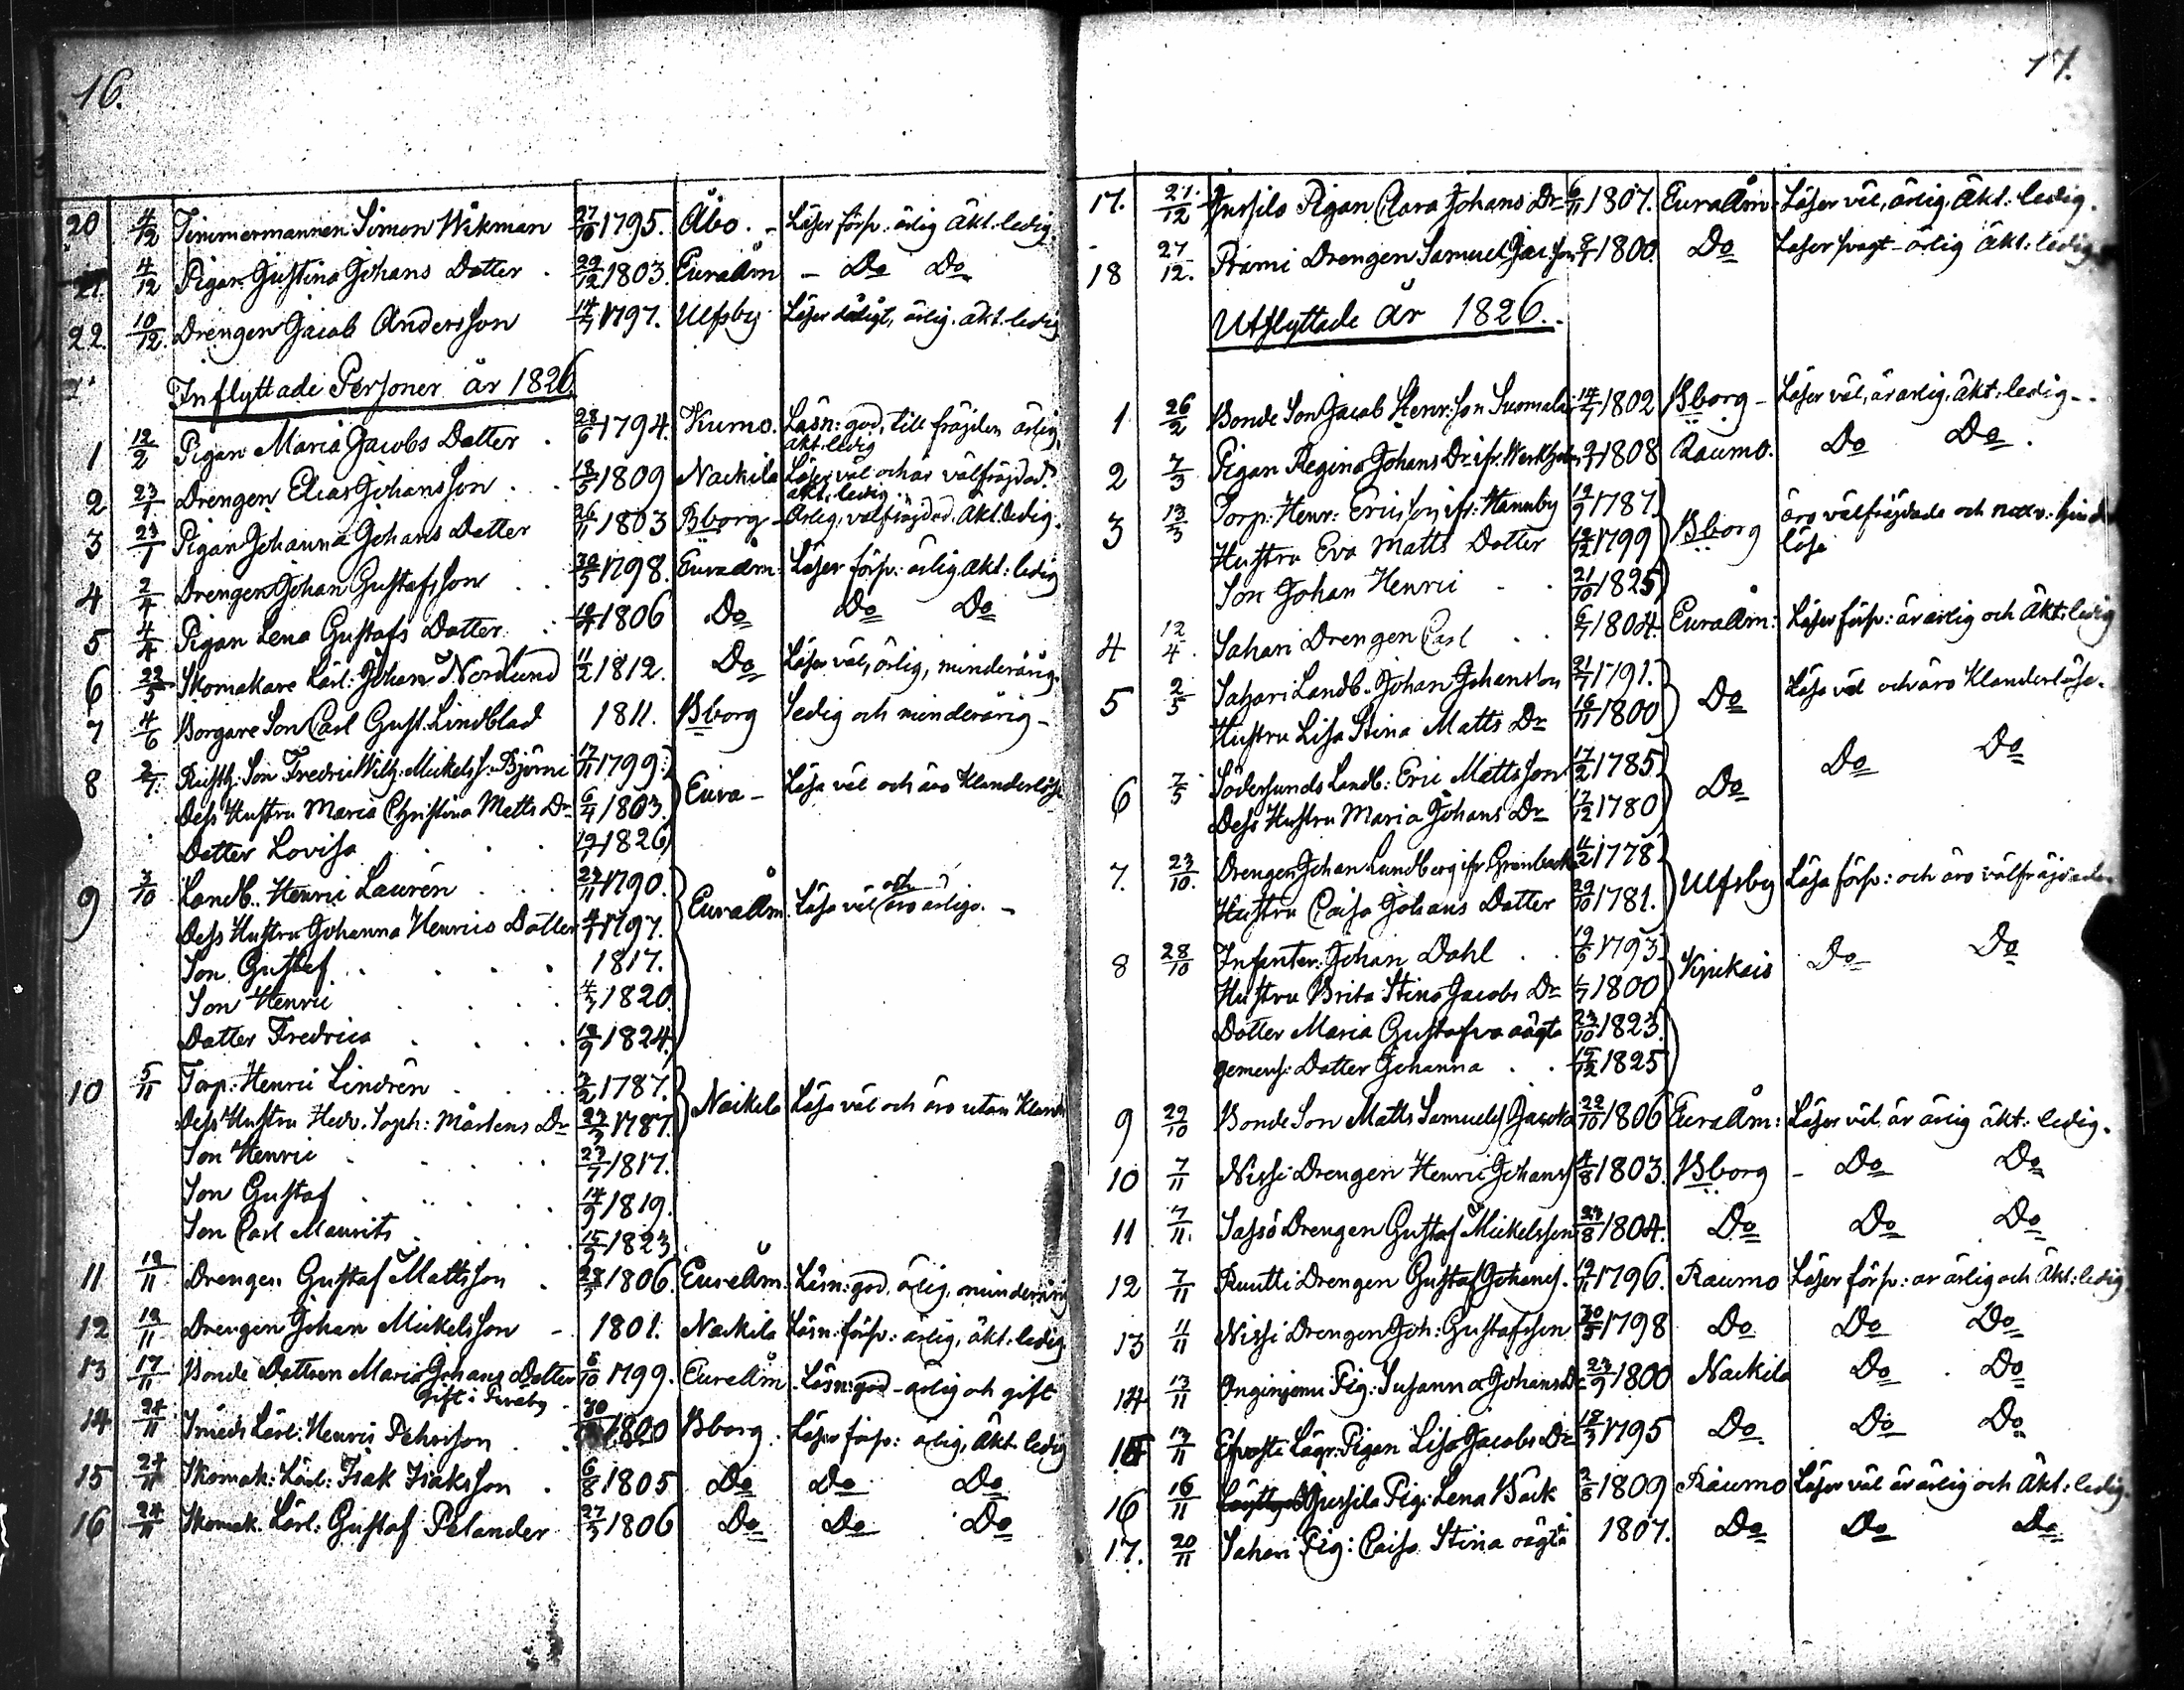 16.
20 4/12 Timmermannen Simon Wikman 27/10 1795. Åbo. - Läser försv: ärlig Äkt: ledig.
21. 4/12 Pigan Justina Johans Dotter . 29/12 1803. EuraÅm - Do Do
22. 10/12. Drengen Jacob Andersson 14/7 1797. Ulfsby Läser dåligt, ärlig. äkt: ledig
Inflyttade Personer år 1826
1 12/2 Pigan Maria Jacobs Dotter . 28/6 1794. Kumo. Läsn: god, till fräjden ärlig,
äkt: ledig
2 23/1 Drengen Elias Johansson . . 18/5 1809 Nackila Läser väl och är välfräjdad.
äkt: ledig
3 23/1 Pigan Johanna Johans Dotter 26/11 1803 Bborg - Ärlig, välfräjdad, Äkt. ledig.
4 2/4 Drengen Johan Gustafsson . . 30/5 1798. EuraÅm: Läser försv: ärlig, äkt: ledig
5 4/4 Pigan Lena Gustafs Dotter . 1806 Do Do Do
6 22/5 Skomakare Lärl: Johan Nordlund 11/2 1812. Do Läser väl, ärlig, minderårig.
7 4/6 Borgare Son Carl Gust. Lindblad 1811. Bborg Ledig och minderårig -
8 2/7. Rusth: Son Fredric Wilh: Mickelss: Björni 17/11 1799. Eura - Läsa väl och äro klanderlösa
Dess Hustru Maria Christina Matts Dr 6/4 1803.
Dotter Lovisa . . . 1826
9 3/10 Landb. Henric Laurén . . . 23/11 1790. EuraÅm. Läsa väl och äro ärliga. -
Dess Hustru Johanna Henrics Dotter 1797.
Son Gustaf . . . . 1817.
Son Henric . . . 4/3 1820.
Dotter Fredrica . . . 18/9 1824.
10 5/11 Torp: Henric Lindrén . . . 2/2 1787. Nackila Läsa väl och äro utan kland
Dess Hustru Hedv. Soph: Mårtens Dr 23/3 1787.
Son Henric . . . . 23/7 1817.
Son Gustaf . . . . 14/9 1819.
Son Carl Maurits . . . 15/9 1823
11 12/11 Drengen Gustaf Mattsson . 28/3 1806. EuraÅm. Läsn: god, ärlig, minderårig
12 12/11 Drengen Johan Mickelsson - 1801. Nackila Läsn: försv: ärlig, äkt: ledig
13 17/11 Bonde Dottren Maria Johans Dotter 6/10 1799. EuraÅm Läsn: god - ärlig och gift
Gift i
14 24/11 Smeds Lärl: Henric Pehrsson . . 30/ 1800 Bborg . Läser försv: ärlig, Äkt: ledig
15 24/11 Skomak: Lärl: Isak Isaksson . 6/8 1805 Do Do Do
16 24/11 Skomak. Lärl: Gustaf Pelander 27/3 1806 Do Do Do
17.
17. 21./12 Jussila Pigan Clara Johans Dr 6/11 1807. EuraÅm: Läser väl, ärlig Äkt: ledig.
18 27/12. Drengen Samuel 1800. Do Läser svagt - ärlig Äkt: ledig
Utflyttade år 1826.
1 26/2 Bonde Son Jacob Henr: son Suomela 14/7 1802 Bborg - Läser väl, är ärlig, äkt: ledig - .
2 7/3 Pigan Regina Johans Dr ifr. 1808 Raumo. Do Do .
3 13/3 Torp: Henr: Ericsson ifr: Hannby 19/9 1787. Bborg äro välfräjdade och
Hustru Eva Matts Dotter 12/12 1799 lösa
Son Johan Henric . . 21/10 1825
4 12/4. Sahari Drengen Carl . . 6/7 1804. EuraÅm: Läser försv: är ärlig och Äkt: ledig
5 2/5 Sahari Landb. Johan Johansson 21/7 1791. Do Läsa väl och äro klanderlösa.
Hustru Lisa Stina Matts Dr 16/11 1800
6 7/5 Södersunds Landb: Eric Mattsson 17/2 1785. Do Do Do
Dess Hustru Maria Johans Dr 17/12 1780
7. 23/10. Drengen Johan Lundberg ifr. 4/2 1778. Ulfsby Läsa försv: och äro välfräjdade
Hustru Caisa Johans Dotter 29/10 1781.
8 28/10 Infanter: Johan Dahl . . 19/6 1793. Kjukais Do Do
Hustru Brita Stina Jacobs Dr 1/7 1800
Dotter Maria Gustafva oägta 23/10 1823.
gemens: Dotter Johanna . . 15/12 1825
9 29/10 Bonde Son Matts Samuels 22/10 1806 EuraÅm: Läser väl är ärlig äkt: ledig.
10 7/11 Nissi Drengen Henric Johanss 4/8 1803. Bborg - Do Do
11 7/11. Sassö Drengen Gustaf Mickelsson 23/8 1804. Do Do Do
12 7/11 Ruutti Drengen Gustaf Johanss. 12/11 1796. Raumo Läser försv: är ärlig och Äkt: ledig
13 11/11 Nissi Drengen Joh: Gustafsson 30/5 1798 Do Do Do
14 13/11 Pig: Susanna Johans Dr 23/9 1800 Nackila Do . Do
15 13/11 Pigan Lisa Jacobs Dr 18/3 1795 Do Do Do
16 16/11 Jussila Pig: Lena Bäck 2/8 1809 Raumo Läser väl är ärlig och Äkt: ledig.
17. 20/11 Sahari Pig: Caisa Stina oägta 1807. Do Do Do